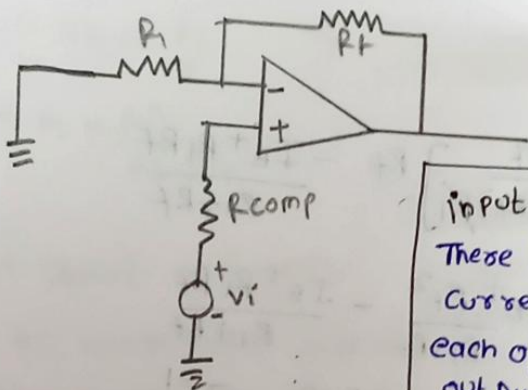 R1
Rf
-
+
Rcomp
+
vi
-
input
There
each o